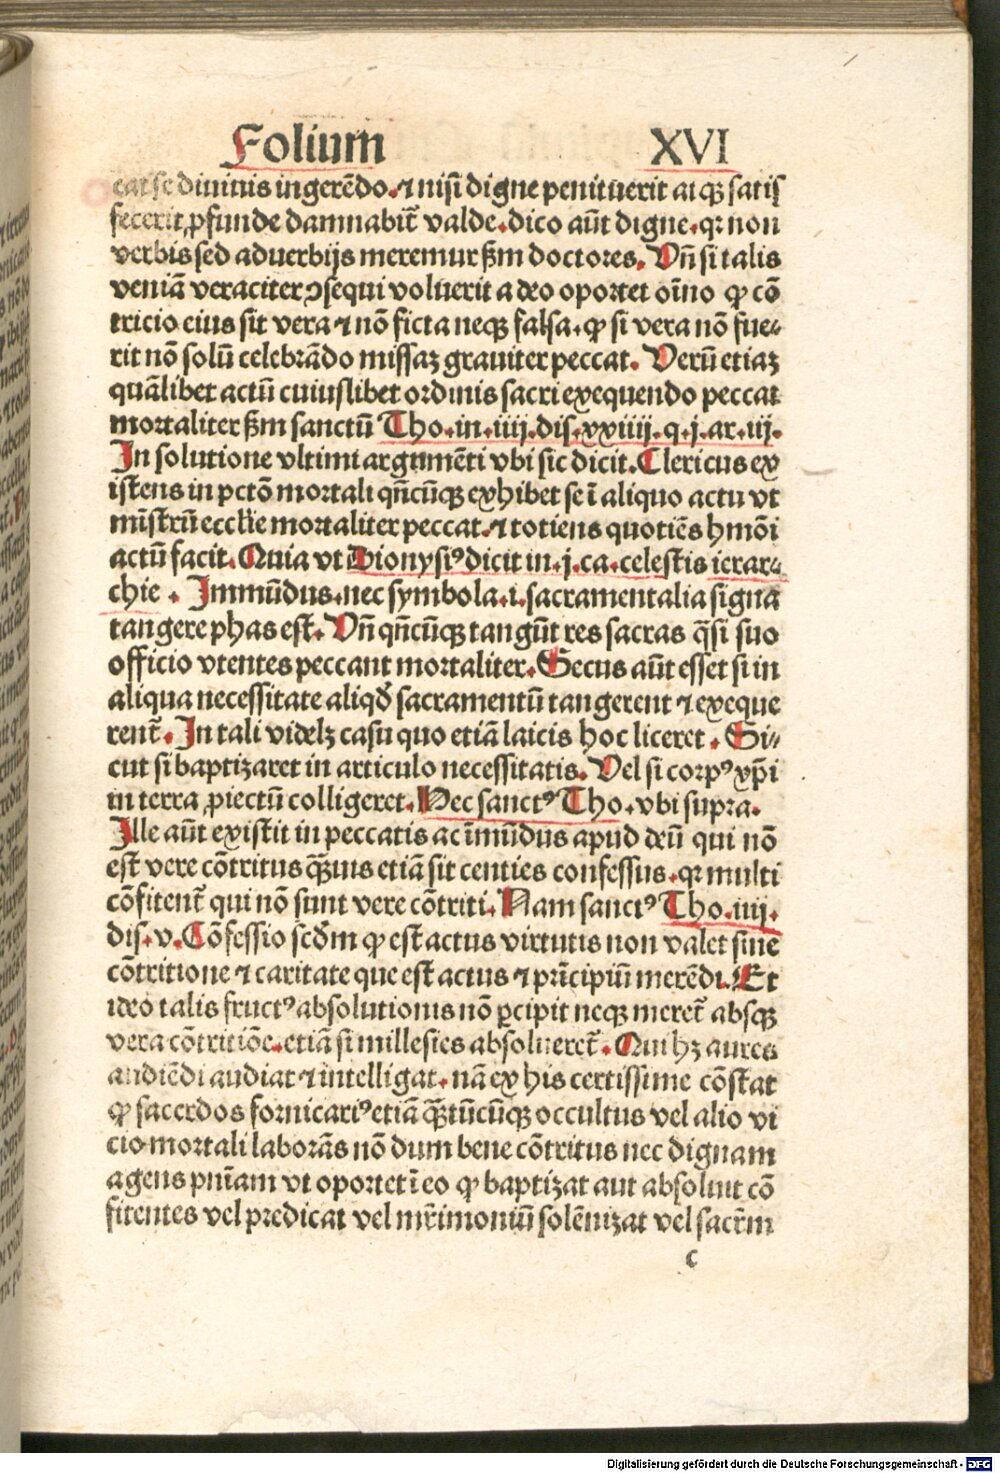 Folium XVI
eat se diuinis ingerēdo.⁊ nisi digne penituerit atqꝫ satis
fecerit,ꝓfunde damnabit̃ valde.dico aūt digne.qꝛ non
verbis sed aduerbijs meremur ẞm doctores. Vn̄ si talis
veniā veraciter ꝯsequi voluerit a deo oportet oīno ꝙ cō
tricio eius sit vera ⁊ nō ficta neqꝫ falsa.ꝙ si vera nō fue⸗
rit nō solū celebrādo missaꝫ grauiter peccat. Verū etiaꝫ
quālibet actū cuiuslibet ordinis sacri exequendo peccat
mortaliter ẞm sanctū Tho.in.iiij.dis.xxiiij.q.j.ar.iij.
In solutione vltimi argumēti vbi sic dicit.Clericus ex
istens in pctō mortali qn̄cūqꝫ exhibet se ī aliquo actu vt
mīstrū eccl̄ie mortaliter peccat.⁊ totiens quotiēs hmōi
actū facit.Quia vt Dionysiꝰ dicit in.j.ca.celestis ierar⸗
chie . Immūdus.nec symbola.i.sacramentalia signa
tangere phas est.Vn̄ qn̄cūqꝫ tangūt res sacras q̄si suo
officio vtentes peccant mortaliter.Secus aūt esset si in
aliqua necessitate aliqđ sacramentū tangerent ⁊ exeque
rent̃.In tali videlꝫ casu quo etiā laicis hoc liceret . Si⸗
cut si baptizaret in articulo necessitatis. Vel si corpꝰ xp̄i
in terra ꝓiectū colligeret.Hec sanctꝰ Tho.vbi supra.
Ille aūt existit in peccatis ac īmūdus apud deū qui nō
est vere cōtritus qꝫ̄uis etiā sit centies confessus.qꝛ multi
cōfitent̃ qui nō sunt vere cōtriti.Nam sanctꝰ Tho.iiij.
dis.v.Cōfessio scd̄m ꝙ est actus virtutis non valet sine
cōtritione ⁊ caritate que est actus ⁊ prīcipiū merēdi.Et
ideo talis fructꝰ absolutionis nō ꝑcipit neqꝫ meret̃ absqꝫ
vera cōtritiōe.etiā si millesies absolueret̃.Qui hꝫ aures
audiēdi audiat ⁊ intelligat.nā ex his certissime cōstat
ꝙ sacerdos fornicariꝰ etiā qꝫ̄tūcūqꝫ occultus vel alio vi
cio mortali laborās nō dum bene cōtritus nec dignam
agens pn̄iam vt oportet ī eo ꝙ baptizat aut absoluit cō
fitentes vel predicat vel mr̄imoniū solēnizat vel sacr̄m
c
Digitalisierung gefördert durch die Deutsche Forschungsgemeinschaft - DFG